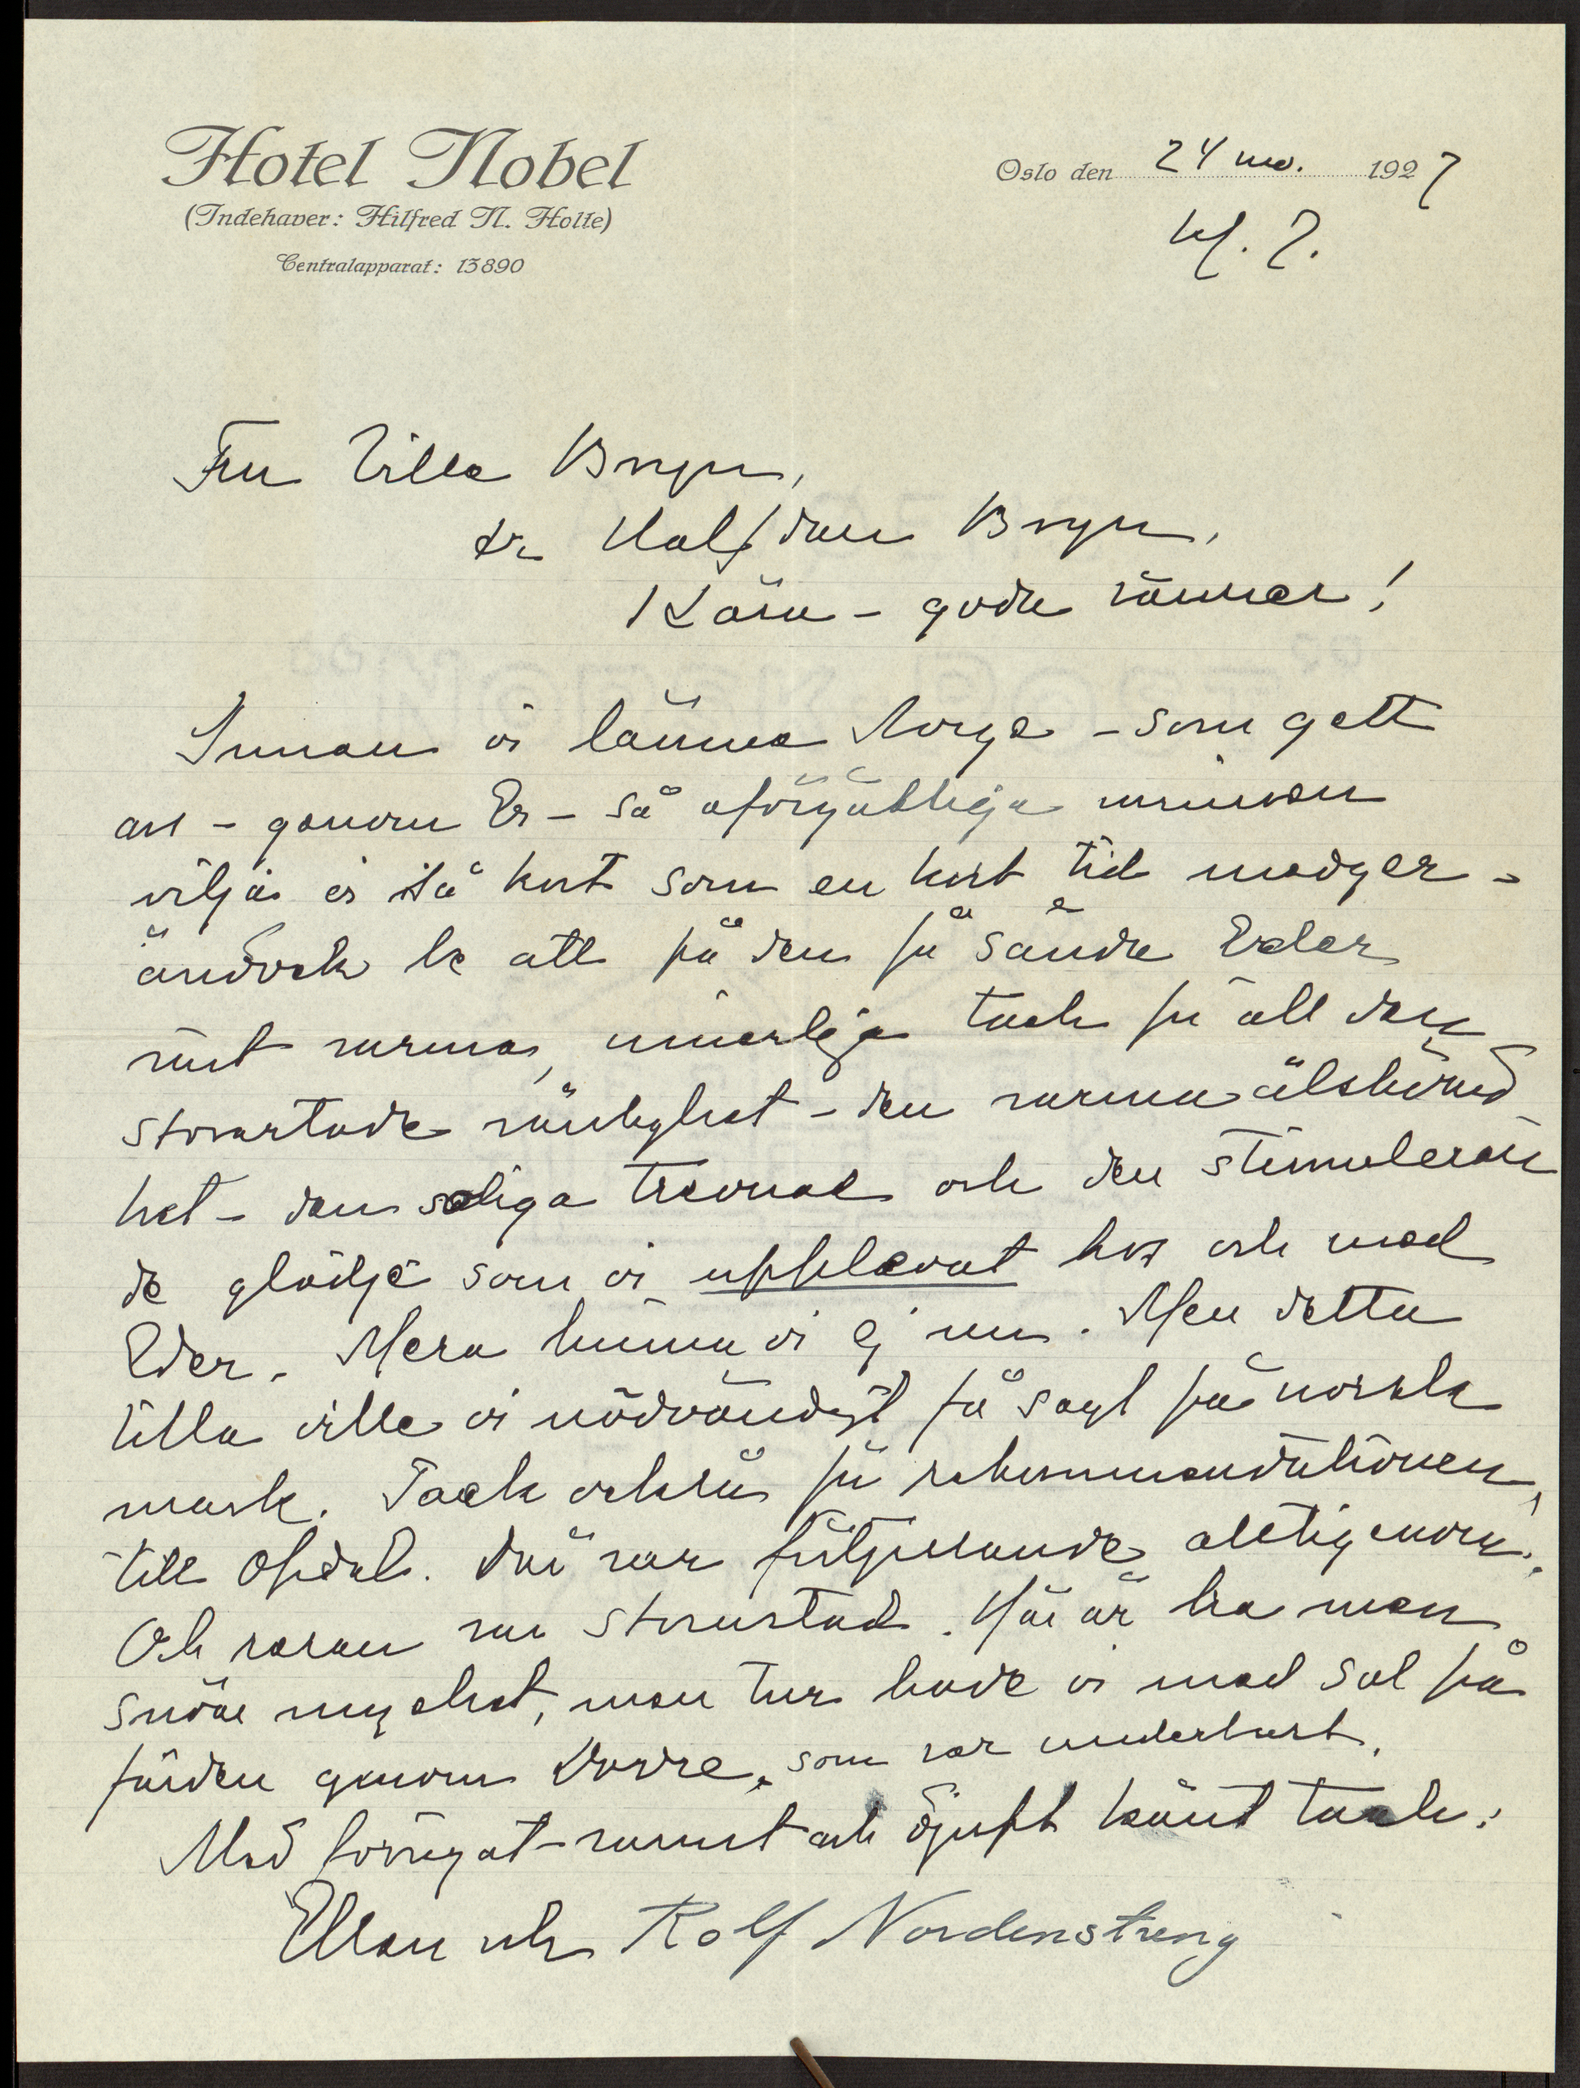 Hotel Nobel
(Indehaver: Hilfred N. Holte)
Centralapparat: 13890
Oslo den 24 nov. 1927
kl. 7.
Fru Villa Bryn,
dr Halfdan Bryn,
Kära - goda vänner!
Innan vi lämna Norge - som gett
oss - genom Er - så oförgätliga minnen
vilja vi så kort som en kort tid medger -
ändock be att på den få sända Eder
vårt varma, innerliga tack för all den
storartade vänlighet - den varma älskvärd
het - den soliga trevnad och den stimuleran
de glädje som vi upplevat hos och med
Eder. Mera hinna vi ej nu. Men detta
lilla ville vi nödvändigt få sagt på norsk
mark. Tack också för rekommendationen
till Opdal. Där var förtjusande alltigenom.
Och resan var storartad. Här är bra men
snöar mycket, men tur hade vi med sol på
färden genom Dovre, som var underbart.
Med förnyat varmt och djupt känt tack:
Ellen och Rolf Nordenstreng